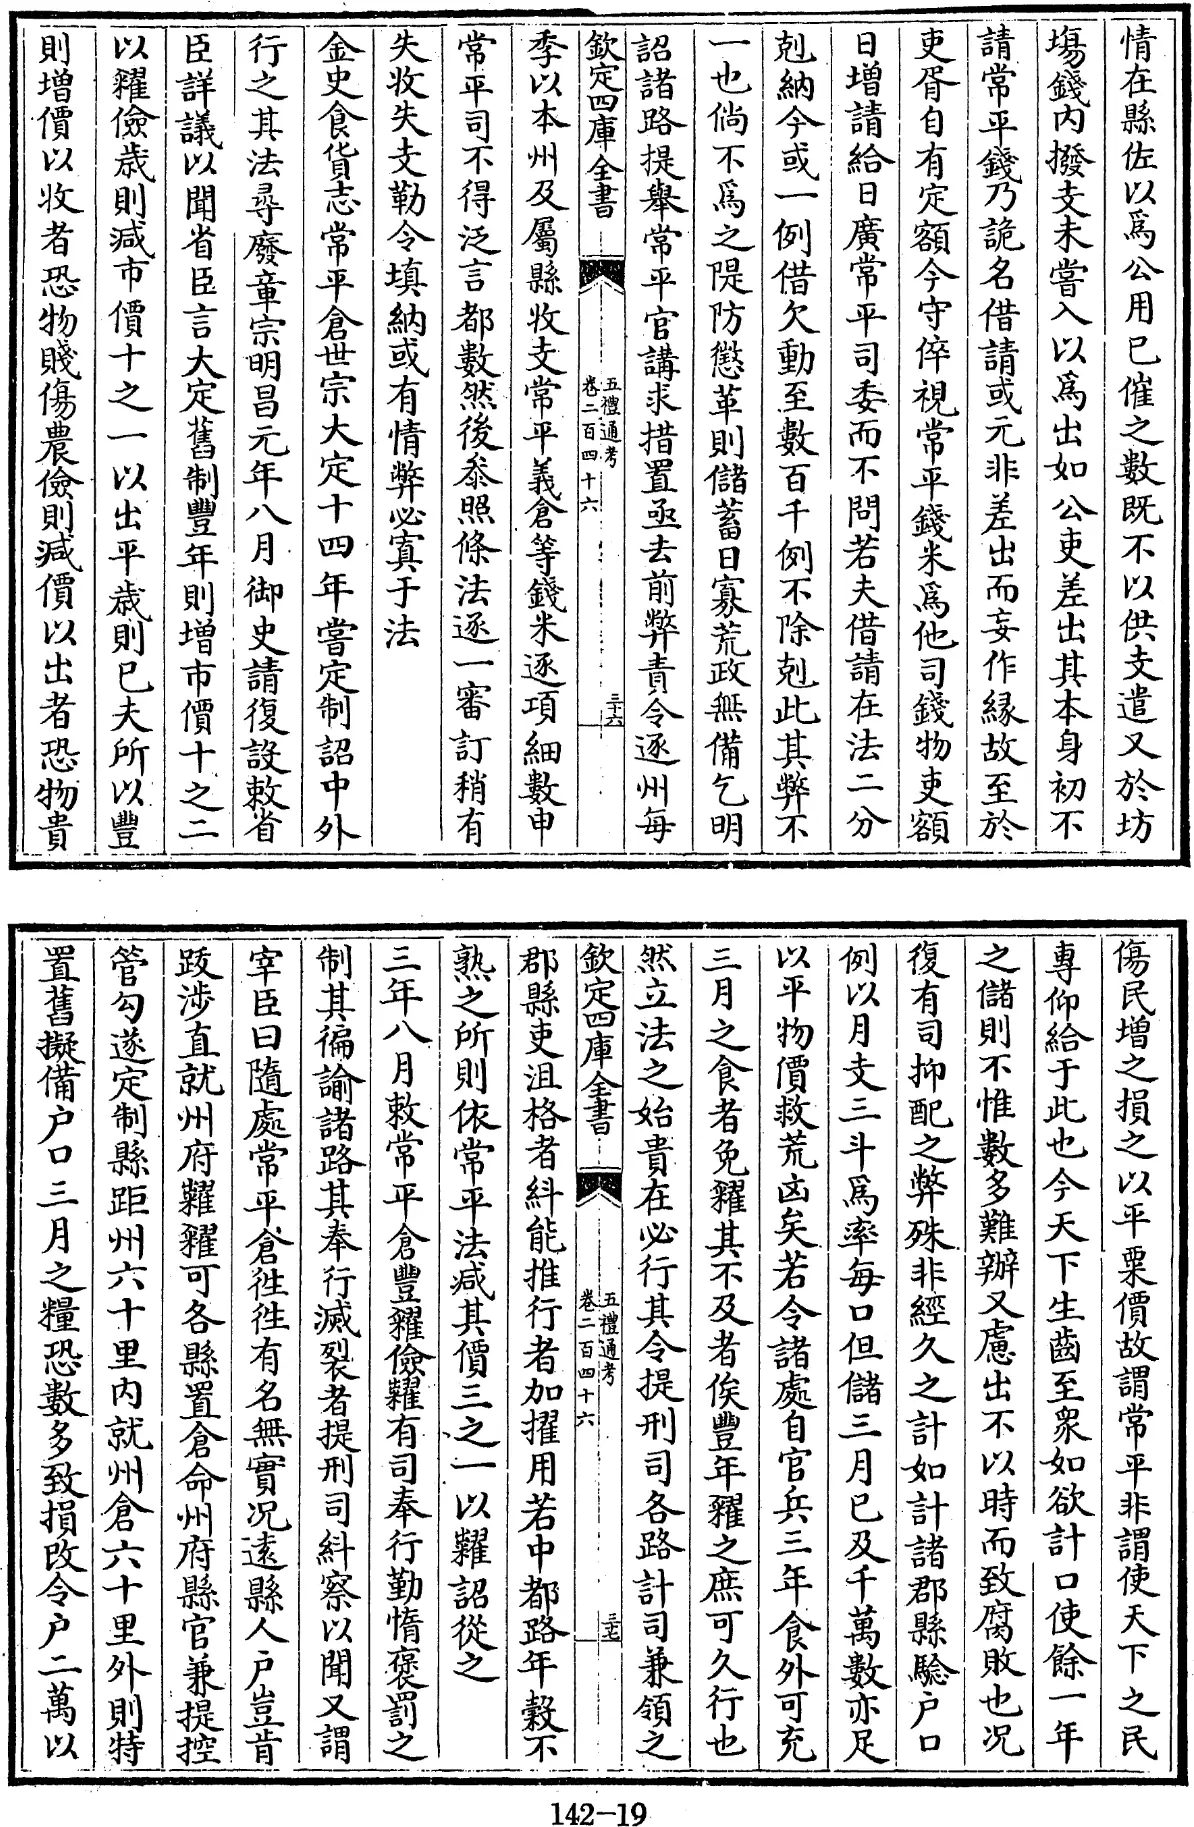 情在縣佐以爲公用已催之數既不以供支遣又於坊
塲錢内撥支未嘗入以爲出如公吏差出其本身初不
請常平錢乃詭名借請或元非差出而妄作縁故至於
吏胥自有定額今守倅視常平錢米爲他司錢物吏額
日增請給日廣常平司委而不問若夫借請在法二分
剋納今或一例借欠動至數百千例不除剋此其弊不
一也倘不爲之隄防懲革則儲蓄日寡荒政無備乞明
詔諸路提舉常平官講求措置亟去前弊責令逐州每
欽定四庫全書
五禮通考
卷二百四十六
三十六
季以本州及屬縣收支常平義倉等錢米逐項細數申
常平司不得泛言都數然後叅照條法逐一審訂稍有
失收失支勒令填納或有情弊必寘于法
金史食貨志常平倉世宗大定十四年嘗定制詔中外
行之其法尋廢章宗明昌元年八月御史請復設敕省
臣詳議以聞省臣言大定舊制豐年則增市價十之二
以糴儉歲則減市價十之一以出平歲則已夫所以豐
則增價以收者恐物賤傷農儉則減價以出者恐物貴
傷民增之損之以平粟價故謂常平非謂使天下之民
專仰給于此也今天下生齒至衆如欲計口使餘一年
之儲則不惟數多難辦又慮出不以時而致腐敗也况
復有司抑配之弊殊非經久之計如計諸郡縣驗户口
例以月支三斗爲率每口但儲三月已及千萬數亦足
以平物價救荒凶矣若令諸處自官兵三年食外可充
三月之食者免糴其不及者俟豐年糴之庶可久行也
然立法之始貴在必行其令提刑司各路計司兼領之
欽定四庫全書
五禮通考
卷二百四十六
三十七
郡縣吏沮格者糾能推行者加擢用若中都路年穀不
熟之所則依常平法減其價三之一以糶詔從之
三年八月敕常平倉豐糴儉糶有司奉行勤惰褒罰之
制其徧諭諸路其奉行滅裂者提刑司糾察以聞又謂
宰臣曰隨處常平倉徃徃有名無實况遠縣人户豈肯
跋涉直就州府糶糴可各縣置倉命州府縣官兼提控
管勾遂定制縣距州六十里内就州倉六十里外則特
置舊擬備户口三月之糧恐數多致損改令户二萬以
142-19